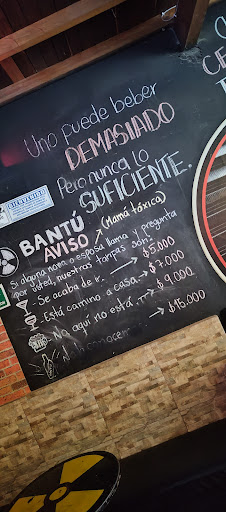 Uno puede beber
DEMASIADO
Pero nunca lo
SUFICIENTE.
BIENVENIDO
BANTÚ
AVISO → (Mamá tóxica)
Si alguna mama o esposa llama y pregunta
por usted, nuestras tarifas son:
. Se acaba de ir → $5.000
. Está camino a casa → $7.000
. No aquí no está → $9.000
$15.000